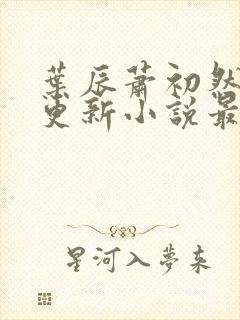 葉辰蕭初然
更新小說最
星河入夢來